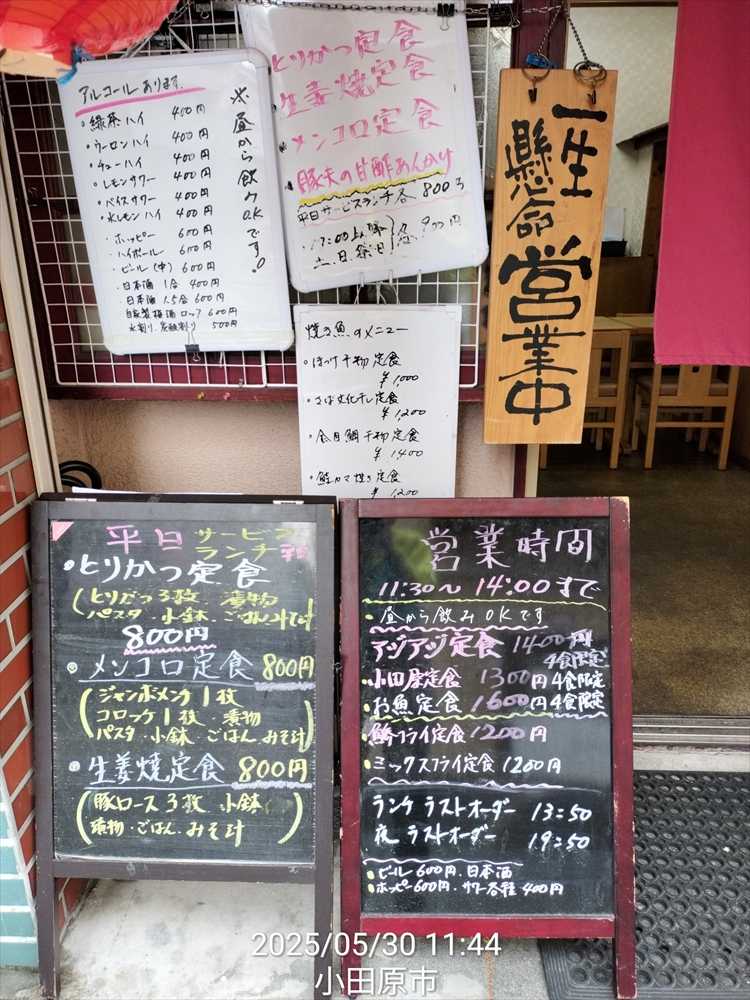 アルコールあります。
・緑茶ハイ 400円
・ウーロンハイ 400円
・チューハイ 400円
・レモンサワー 400円
・バイスサワー 400円
・水レモンハイ 400円
・ホッピー 600円
・ハイボール 600円
・ビール(中) 600円
・日本酒 1合 400円
・日本酒 1.5合 600円
自家製梅酒ロック 600円
水割り、炭酸割り 500円
※昼から飲みOKです。
とりかつ定食
生姜焼定食
メンコロ定食
豚天の甘酢あんかけ
平日サービスランチ各 800円
・17:00以降
土、日、祭日
各 900円
焼き魚のメニュー
・ほっけ干物定食
¥1,000
・さば文化干し定食
¥1,200
・金目鯛干物定食
¥1,400
・鮭カマ焼き定食
¥1,200
一生
懸命
営業中
平日サービス
ランチ
・とりかつ定食
(とりかつ3枚 漬物
パスタ 小鉢 ごはんみそ汁)
800円
メンコロ定食 800円
(ジャンボメンチ1枚
コロッケ1枚 漬物
パスタ・小鉢・ごはん みそ汁)
生姜焼定食 800円
(豚ロース3枚 小鉢
漬物・ごはん・みそ汁)
営業時間
11:30〜14:00まで
・昼から飲みOKです
アジアジ定食 1400円
4食限定
・小田原定食 1300円 4食限定
・お魚定食 1600円 4食限定
・鯵フライ定食 1200円
・ミックスフライ定食 1200円
ランチ ラストオーダー 13:50
夜 ラストオーダー 19:50
・ビール600円・日本酒
・ホッピー600円・サワー各種400円
2025/05/30 11:44
小田原市